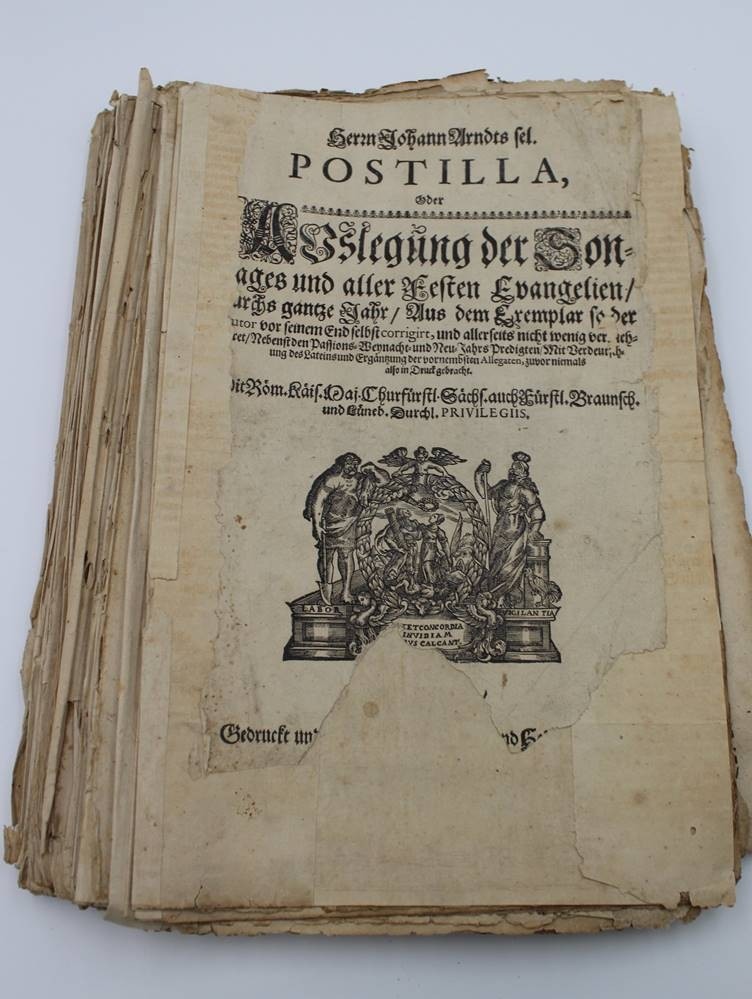 Herrn Johann Arndts sel.
POSTILLA,
Oder
AUßlegung der Son-
ages und aller Festen Evangelien/
urchs gantze Jahr/ Aus dem Exemplar so der
utor vor seinem End selbst corrigirt, und allerseits nicht wenig ver
ret/ Nebenst den Passions- Weynacht- und Neu-Jahrs Predigten/ Mit Verdeut
ung des Lateins und Ergäntzung der vornembsten Allegaten, zuvor niemals
also in Druck gebracht.
it Röm. Käis. Maj. Churfürstl. Sächs. auch Fürstl. Braunsch.
und Lüneb. Durchl. PRIVILEGIIS.
LABOR
GILANTIA
ET CONCORDIA
INVIDIAM
CALCANT
Gedruckt un
nd